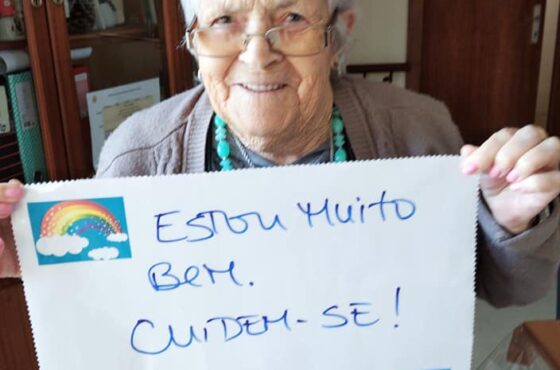 ESTOU MUITO
BEM.
CUIDEM-SE!